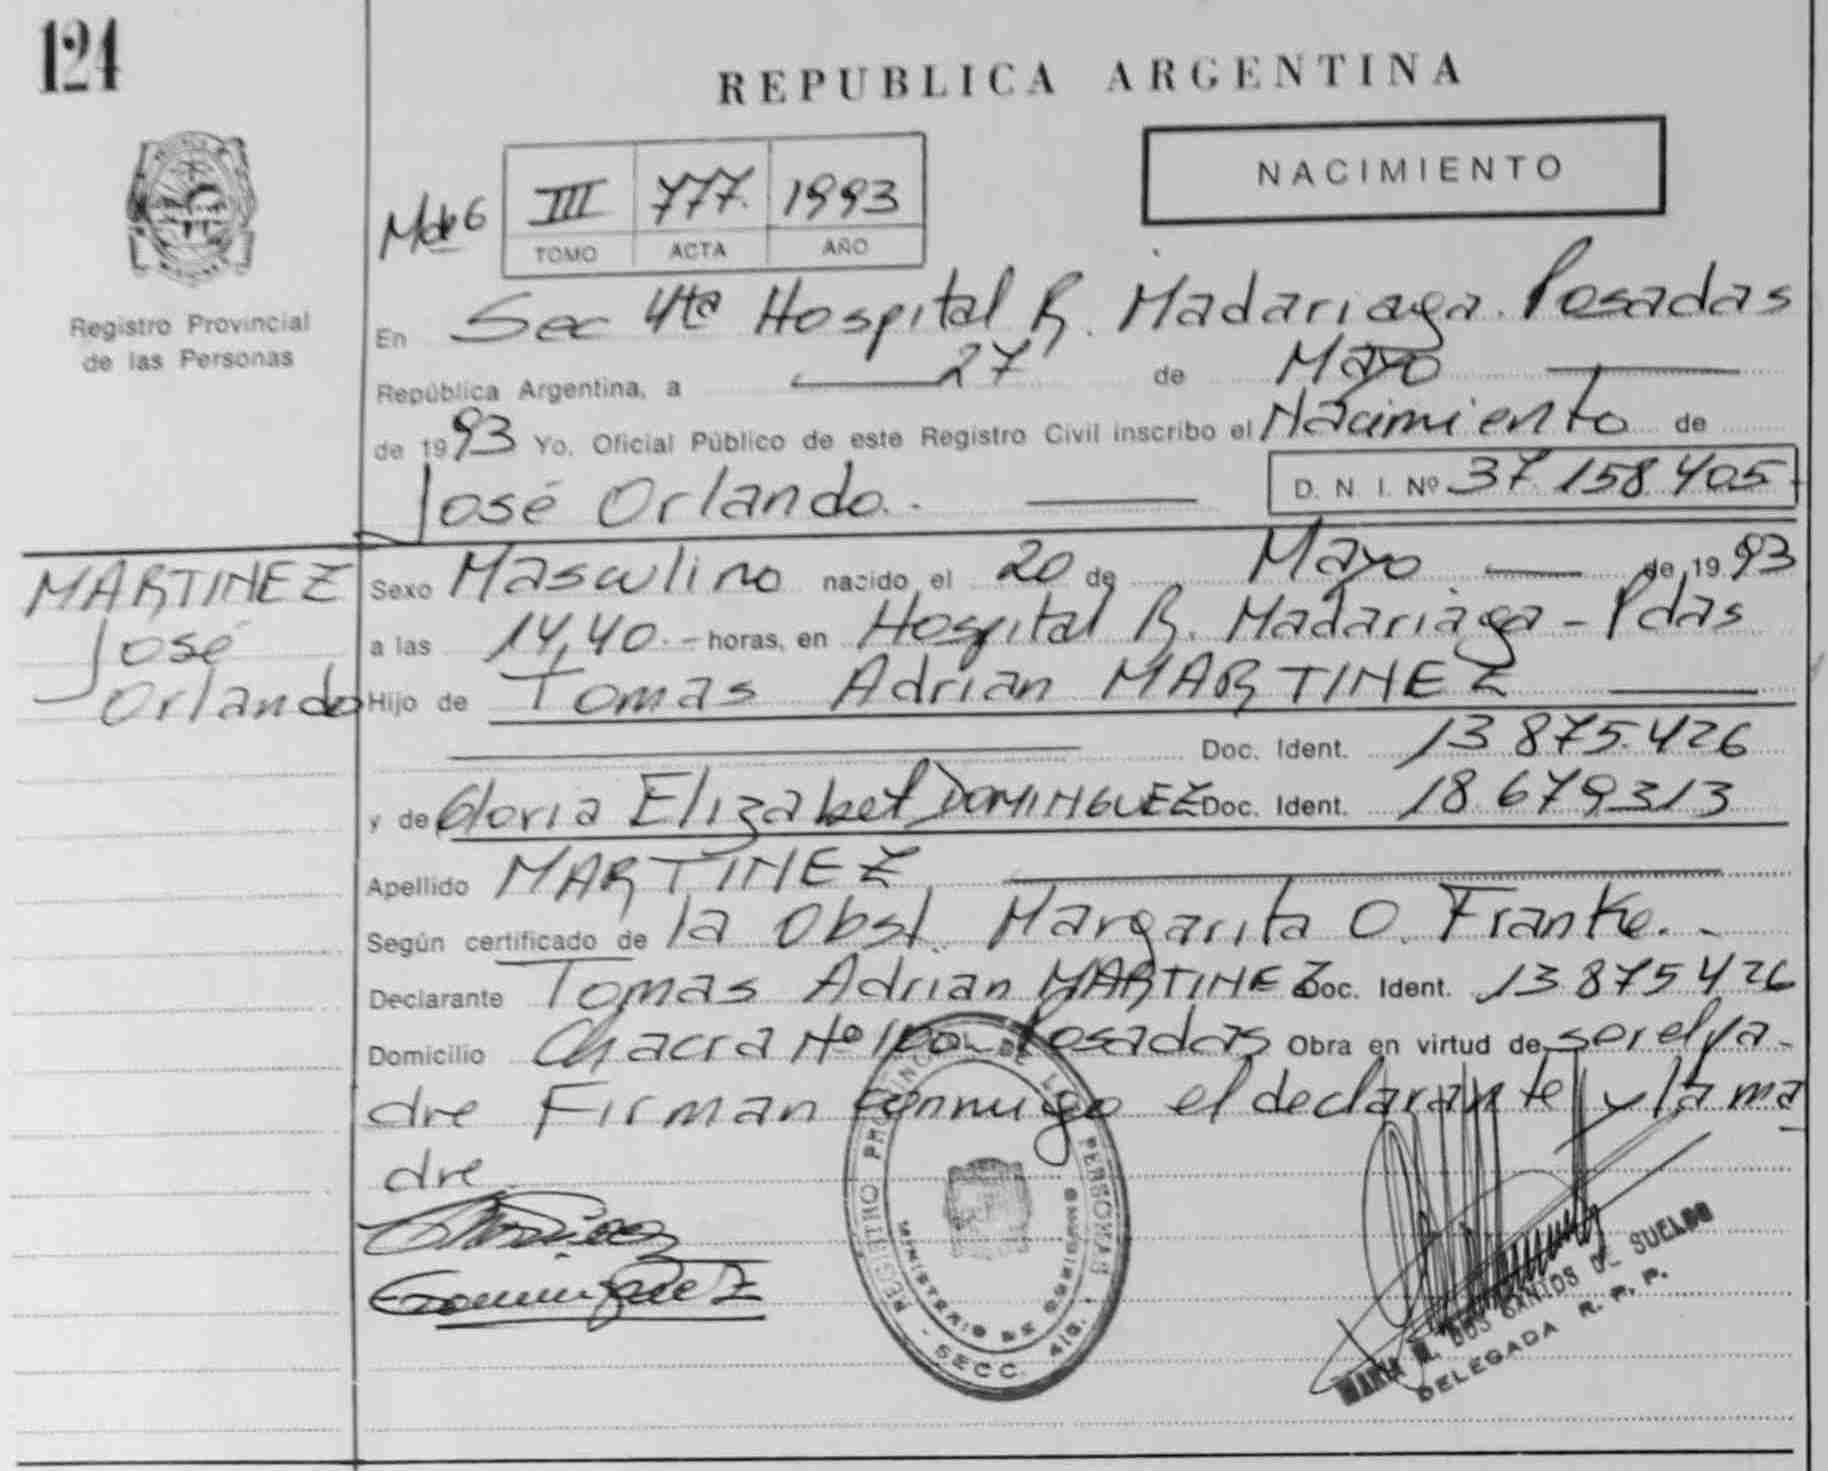 124
REPUBLICA ARGENTINA
NACIMIENTO
III 777. 1993
TOMO ACTA AÑO
Registro Provincial
de las Personas
En Sec 4ta Hospital R. Madariaga. Posadas
República Argentina, a 27 de Mayo
de 1993 Yo, Oficial Público de este Registro Civil inscribo el Nacimiento de
José Orlando.- D. N. I. Nº 37.158.405
MARTINEZ
José
Orlando
Sexo Masculino nacido el 20 de Mayo de 1993
a las 14,40.- horas, en Hospital R. Madariaga - Pdas
Hijo de Tomas Adrian MARTINEZ
Doc. Ident. 13.875.426
y de Gloria Elizabet DOMINGUEZ Doc. Ident. 18.679313
Apellido MARTINEZ
Según certificado de la Obst. Margarita O. Franke.-
Declarante Tomas Adrian MARTINEZ Doc. Ident. 13.875426
Domicilio Chacra Nº 100 Posadas Obra en virtud de ser el pa-
dre Firman conmigo el declarante y la ma
dre
REGISTRO PROVINCIAL DE LAS PERSONAS
MINISTERIO DE GOBIERNO
SECC. 4ta.
Dominguez
MARIA M. DOS SANTOS DE SUELDO
DELEGADA R. P. P.